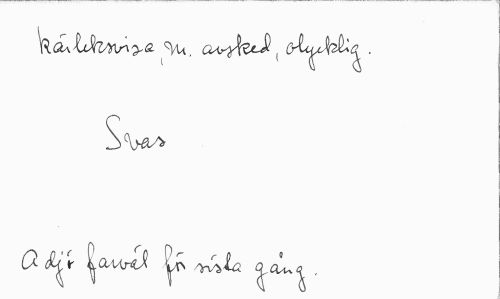 kärleksvisa, m. avsked, olycklig.
Svas
Adjö farväl för sista gång.